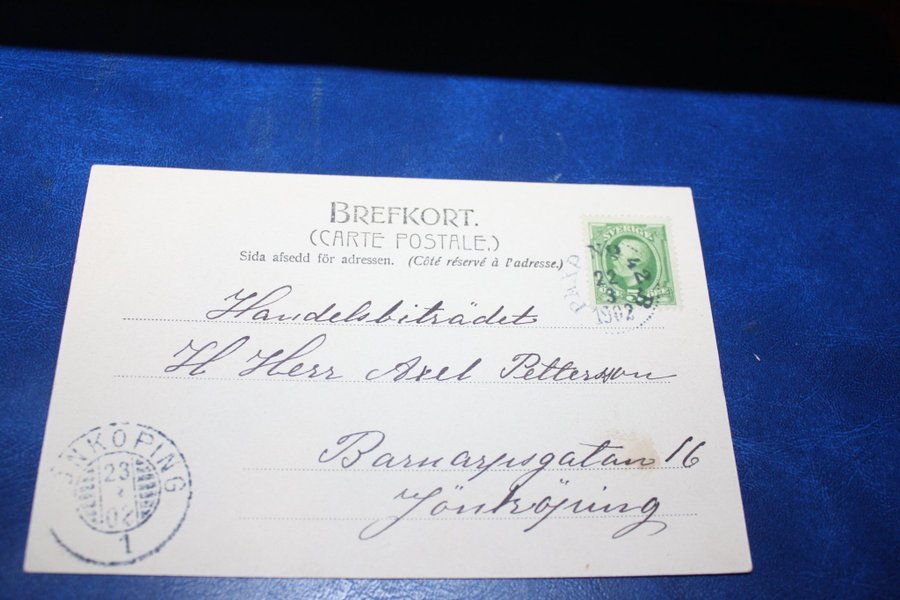 BREFKORT.
(CARTE POSTALE.)
Sida afsedd för adressen. (Côté réservé à l'adresse.)
SVERIGE
22
3
1902
Handelsbiträdet
H Herr Axel Pettersson
Barnarpsgatan 16
Jönköping
JÖNKÖPING
23
3
02
1